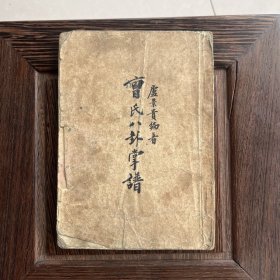 盧景貴編著
曹氏八卦掌譜